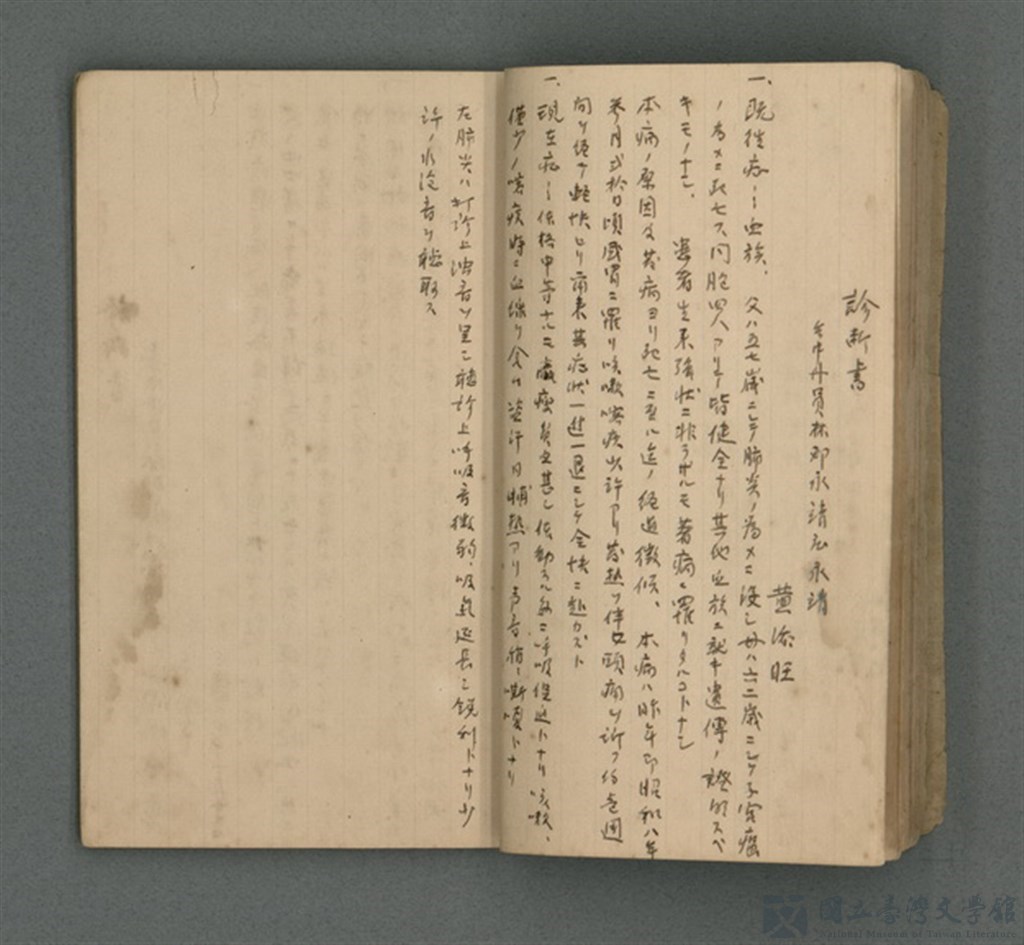 診断書
台中州員林郡永靖庄永靖
黄添旺
一、既往症 血族、父ハ五七歳ニシテ肺炎ノ為メニ没シ母ハ六二歳ニシテ子宮癌
ノ為メニ死亡ス同胞四人アリテ皆健全ナリ其他血族ニ就キ遺傳ノ證明スベ
キモノナシ、患者生来強状ニ非ラザルモ著病ニ罹リタルコトナシ
本病ノ原因及発病ヨリ死亡ニ至ル迄ノ経過徴候、本病ハ昨年即昭和八年
参月弐拾日頃感冒ニ罹リ咳嗽喀痰少許アリ発熱ヲ伴ヒ頭痛ヲ訴フ約壱週
間ヲ経テ軽快セリ爾来其症状一進一退ニシテ全快ニ赴カズト
一、現在症 体格中等ナルニ羸痩貧血甚シ体動スル毎ニ呼吸促迫トナリ咳嗽、
僅少ノ喀痰時ニ血線ヲ含ム盗汗日晡熱アリ声音稍々嘶嗄トナリ
左肺尖ハ打診上濁音ヲ呈シ聴診上呼吸音微弱、吸氣延長シ鋭利トナリ少
許ノ水泡音ヲ聴取ス
國立臺灣文學館
National Museum of Taiwan Literature